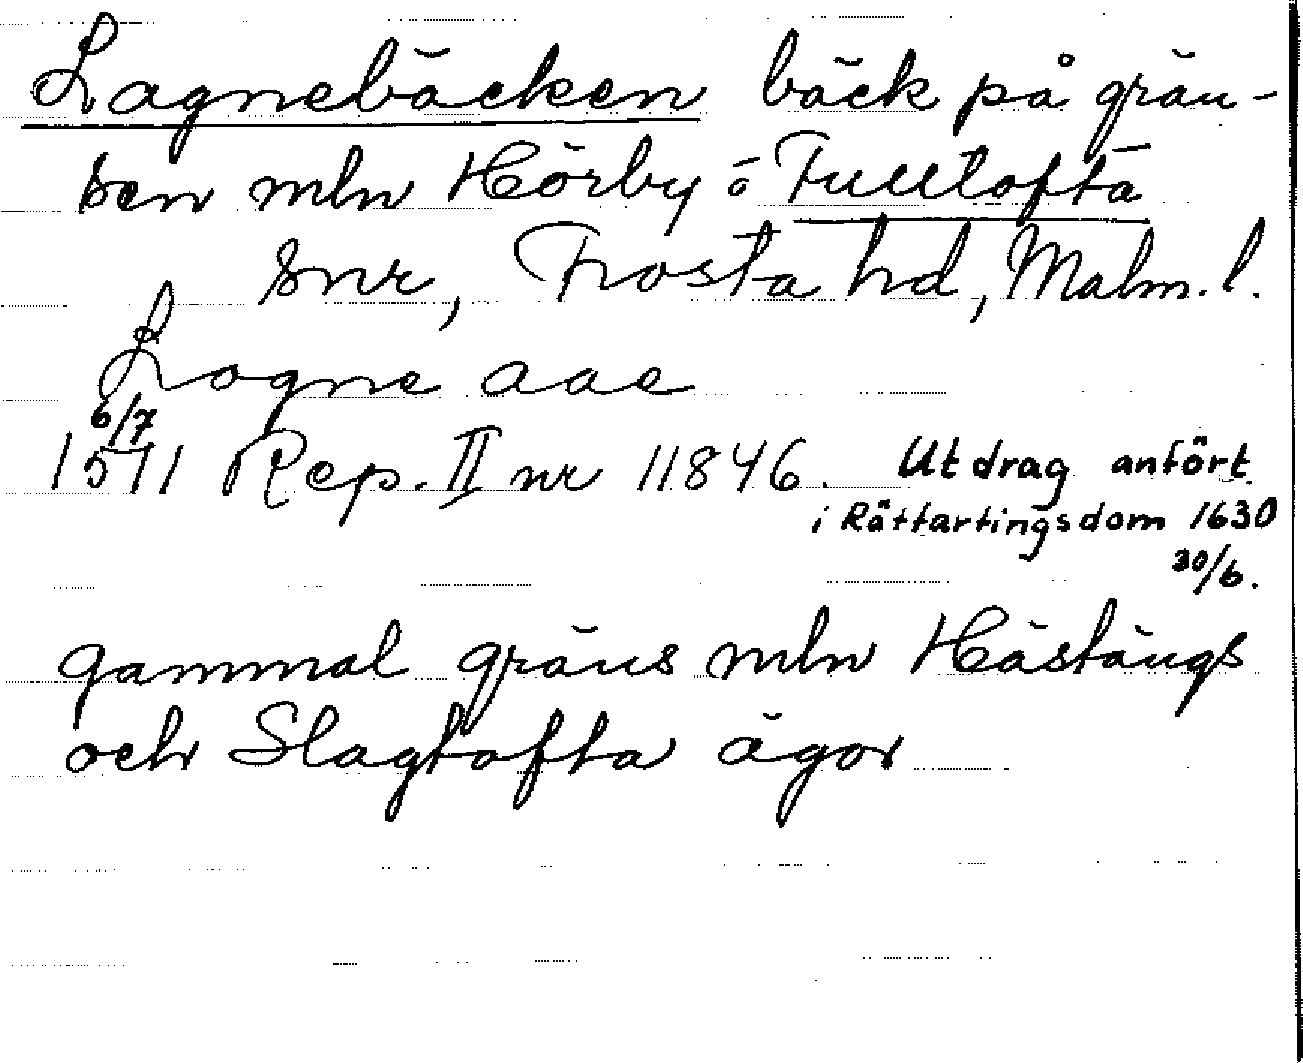 Lagnebäcken bäck på grän-
sen mln Hörby o Fulltofta
snr, Frosta hd, Malm. l.
Logne aae
6/7
1511 Rep. II nr 11846. Utdrag anfört
i Rättartingsdom 1630
30/6.
gammal gräns mln Hästängs
och Slagtofta ägor